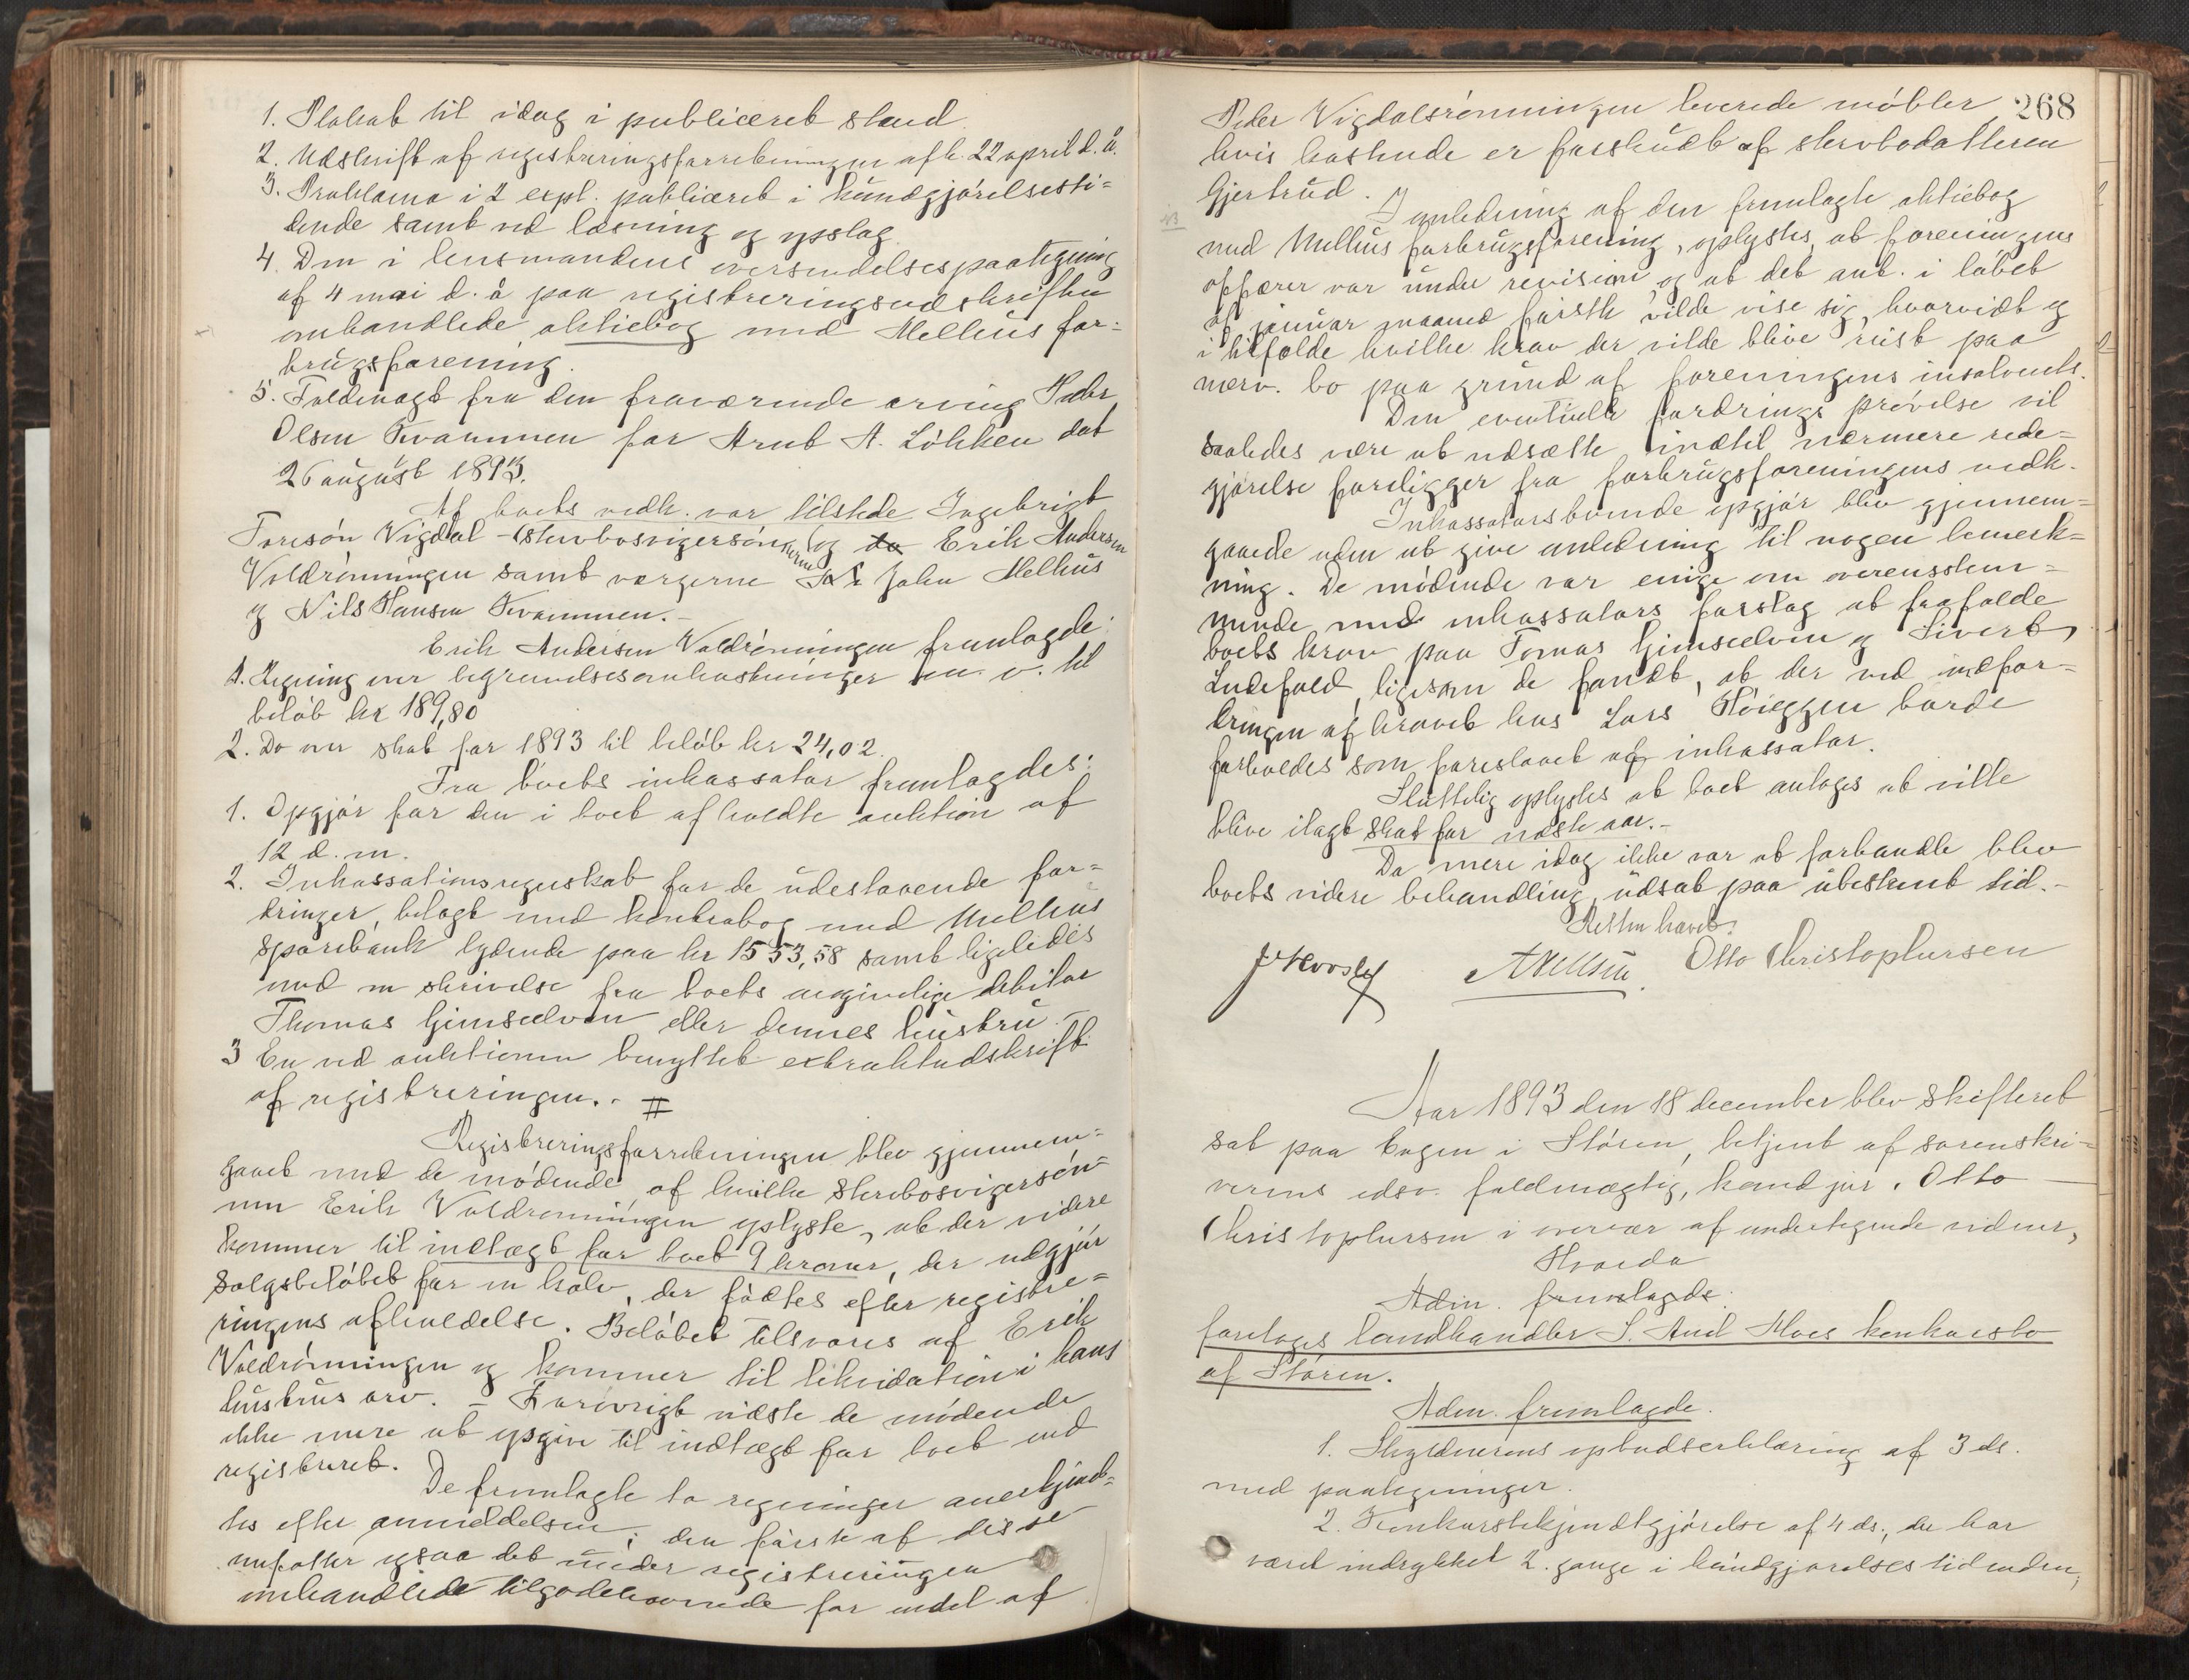 1. Plakat til idag i publiceret stand.
2. Udskrift af registreringsforretningen afh. 22 april d. å.
3. Proklama i 2 expl. publiceret i kundgjørelsesti=
dende samt ved læsning og opslag.
4. Den i lensmandens oversendelsespaategning
af 4 mai d. å paa registreringsudskriften
omhandlede aktiebog med Melhus for=
brugsforening.
5. Fuldmagt fra den fraværende arving Peder
Olsen Kvammen for Arnt A. Løkken dat
26 august 1893.
Af boets vedk. var tilstede Ingebrigt
Foresøn Vigdal - (sterbosvigersønnerne) og do Erik Andersen
Voldrønningen samtværgerne John Melhus
og Nils Hansen Kvammen. -
Erik Andersen Voldrønningen fremlagde:
1. Regning over begravelsesomkostninger m. v. til
beløb kr 189,80
2. Do over skat for 1893 til beløb kr 24,02.
Fra boets inkassator fremlagdes:
1. Opgjør for den i boet afholdte auktion af
12 d. m.
2. Inkassationsregnskab for de udestaaende for=
dringer, belagt med kontrabog med Melhus
Sparebank lydende paa kr 1553,58 samt ligeledes
med en skrivelse fra boets angivelige debitor
Thomas Gimseelven eller dennes hustru. -
3 En ved auktionen benyttet extraktudskrift
af registreringen. - #
Registreringsforretningen blev gjennem=
gaaet med de mødende, af hvilke sterbosvigersøn=
nen Erik Voldrønningen oplyste, at der videre
kommer til indtægt for boet 9 kroner, der udgjør
salgsbeløbet for en kalv, der fødtes efter registre=
ringens afholdelse. Beløbet tilsvares af Erik
Voldrønningen og kommer til likvidation i hans
hustrus arv. - Forøvrigt vidste de mødende
ikke mere at opgive til indtægt for boet end
registreret.
De fremlagte to regninger anerkjend=
tes efter anmeldelsen; den første af disse
omfatter ogsaa det under registreringen
omhandlede tilgodehavende for endel af
268
Peder Vigdalsrønningen leverede møbler,
hvis kostende er forskudt af sterbodatteren
Gjertrud.
I anledning af den fremlagte aktiebog
med Melhus forbrugsforening, oplystes, at foreningens
affærer var under revision og at det ant. i løbet
af januar maaned først vilde vise sig, hvorvidt og
i tilfælde hvilke krav der vilde blive reist paa
nærv. bo paa grund af foreningens insolvents.
Den eventuelle fordrings prøvelse vil
saaledes være at udsætte indtil nærmere rede=
gjørelse foreligger fra forbrugsforeningens vedk.
Inkassators opgjør blev gjennem=
gaaede uden at give anledning til nogen bemerk=
ning. De mødende var enige om overensstem=
mende med inkassators forslag at frafalde
boets krav paa Tomas Gimseelven og Sivert
Ludefald, ligesom de fandt, at der ved indfor=
dringen af kravet hos Lars Høieggen burde
forholdes som foreslaaet af inkassator.
Sluttelig oplystes at boet antages at ville
blive ilagt skat for næste aar. -
Da mere idag ikke var at forhandle blev
boets videre behandling udsat paa ubestemt tid. -
Retten hævet.
Otto Christophersen
Aar 1893 den 18 december blev skifteret
sat paa Engen i Støren, betjent af sorenskri=
verens edsv. fuldmægtig, kand jur. Otto
Christophersen i overvær af undertegnede vidner,
Hvorda
Adm. fremlagde.
foretoges landhandler S. And Moes konkursbo
af Støren.
Adm. fremlagde.
1. Skyldnerens opbudserklæring af 3 ds.
med paategninger.
2. Konkursbekjendtgjørelse af 4 ds., der har
været indrykket 2. gange i kundgjørelsestidenden,